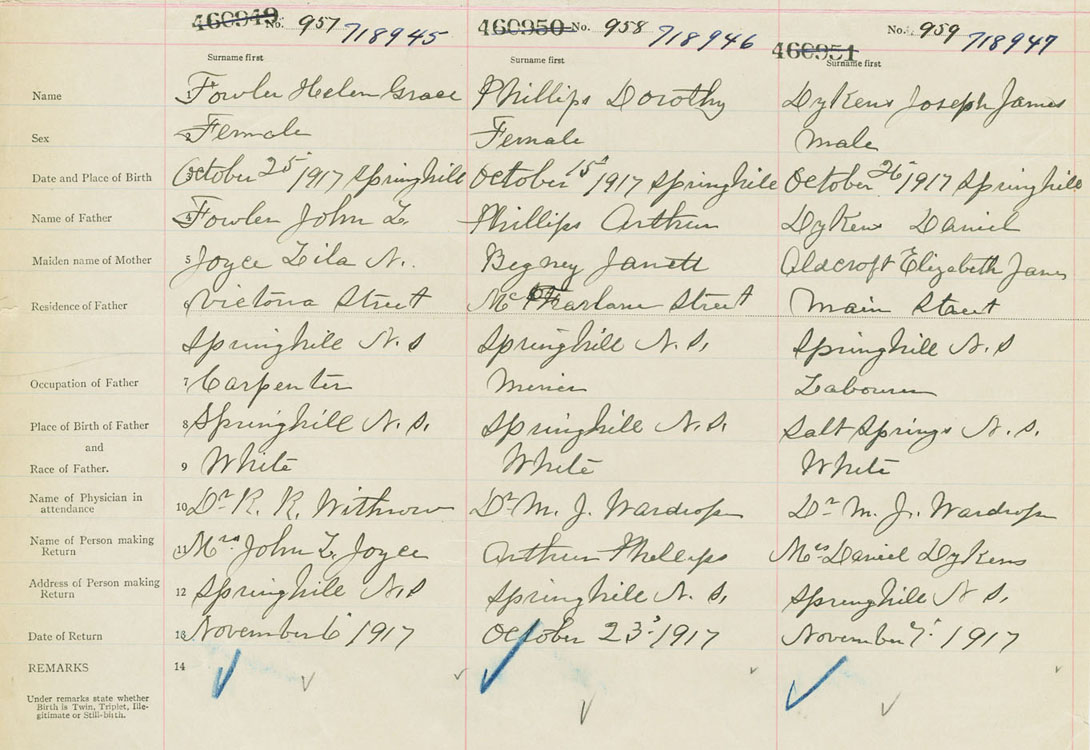 460949 No. 957 718945 460950 No. 958 718946 460951 No. 959 718947
Surname first Surname first Surname first
Name 1 Fowler Helen Grace Phillips Dorothy Dykens Joseph James
Sex 2 Female Female Male
Date and Place of Birth 3 October 25 1917 Springhill October 15 1917 Springhill October 26 1917 Springhill
Name of Father 4 Fowler John L. Phillips Arthur Dykens Daniel
Maiden name of Mother 5 Joyce Lila N. Janett Aldcroft Elizabeth James
Residence of Father 6 Victoria Street McFarlane Street Main Street
Springhill N.S Springhill N.S. Springhill N.S
Occupation of Father 7 Carpenter Miner Labourer
Place of Birth of Father 8 Springhill N.S. Springhill N.S. Salt Springs N.S.
and
Race of Father. 9 White White White
Name of Physician in 10 Dr R. R. Withrow Dr M. J. Wardrop Dr M. J. Wardrop
attendance
Name of Person making 11 Mrs John L. Joyce Arthur Phillips Mrs Daniel Dykens
Return
Address of Person making 12 Springhill N.S Springhill N.S. Springhill N.S.
Return
Date of Return 13 November 6 1917 October 23 1917 November 7 1917
REMARKS 14
Under remarks state whether
Birth is Twin, Triplet, Ille-
gitimate or Still-birth.